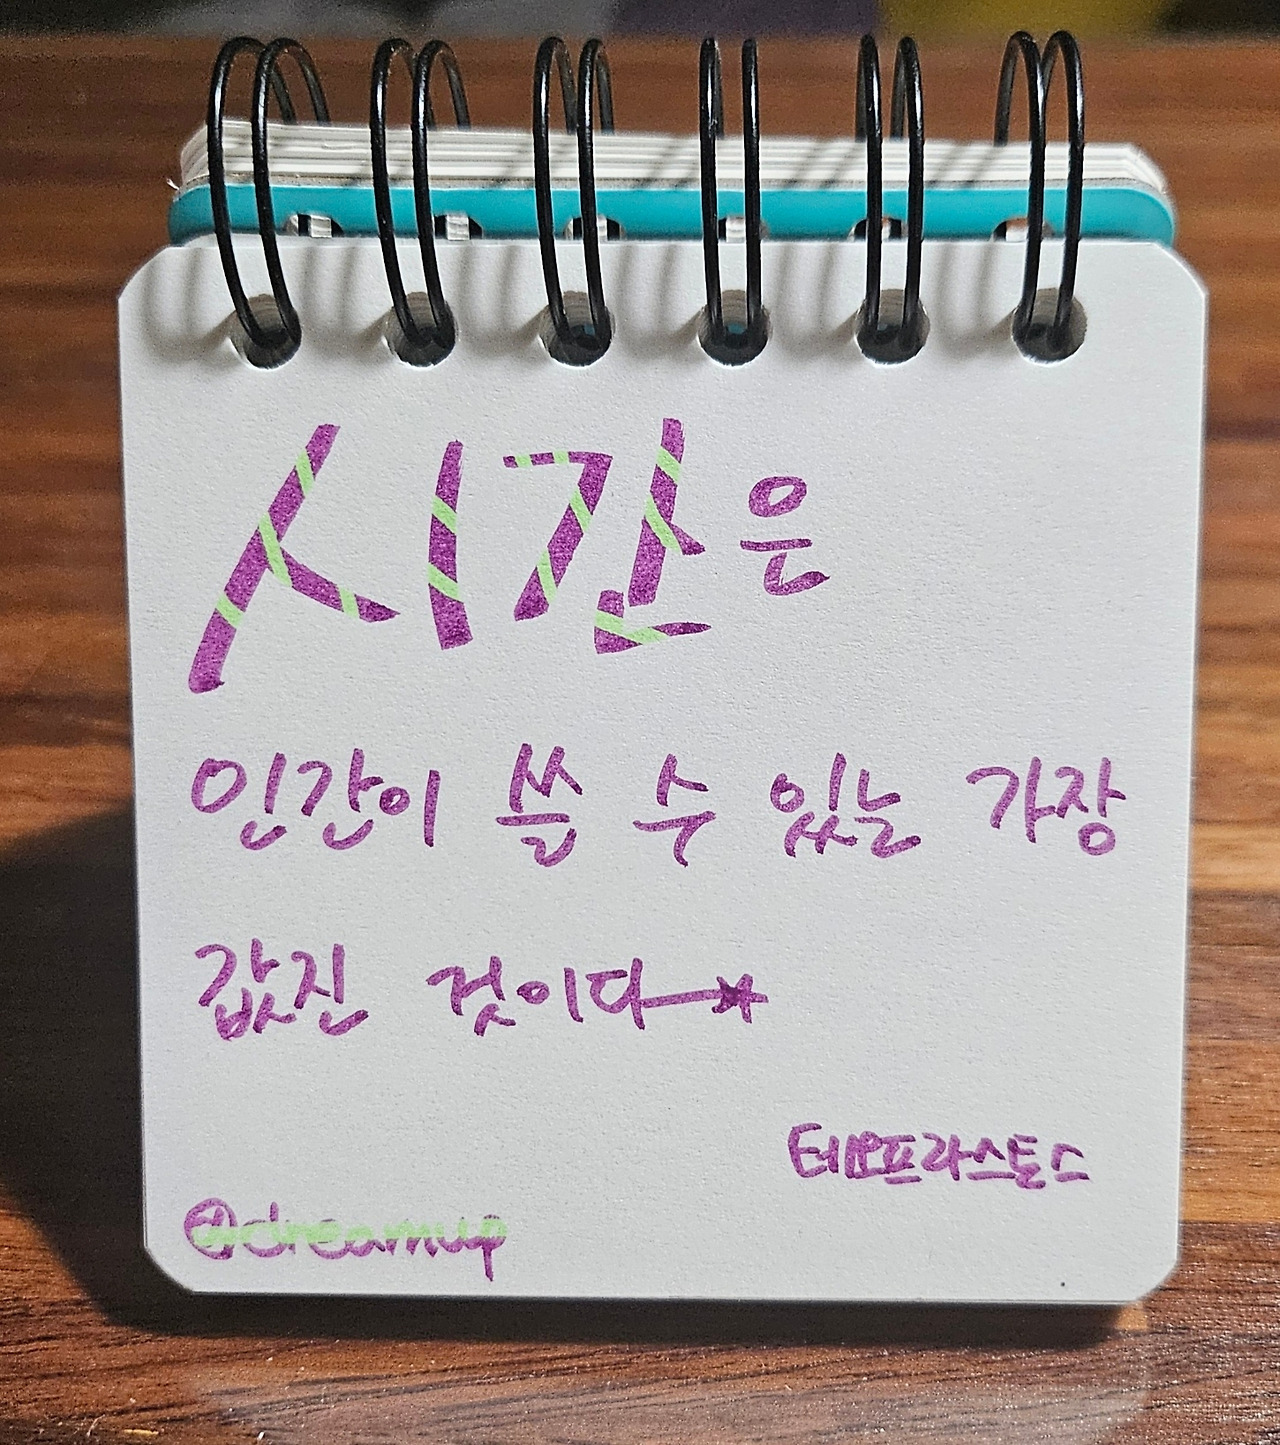 시간은
인간이 쓸 수 있는 가장
값진 것이다
테오프라스토스
@dreamup